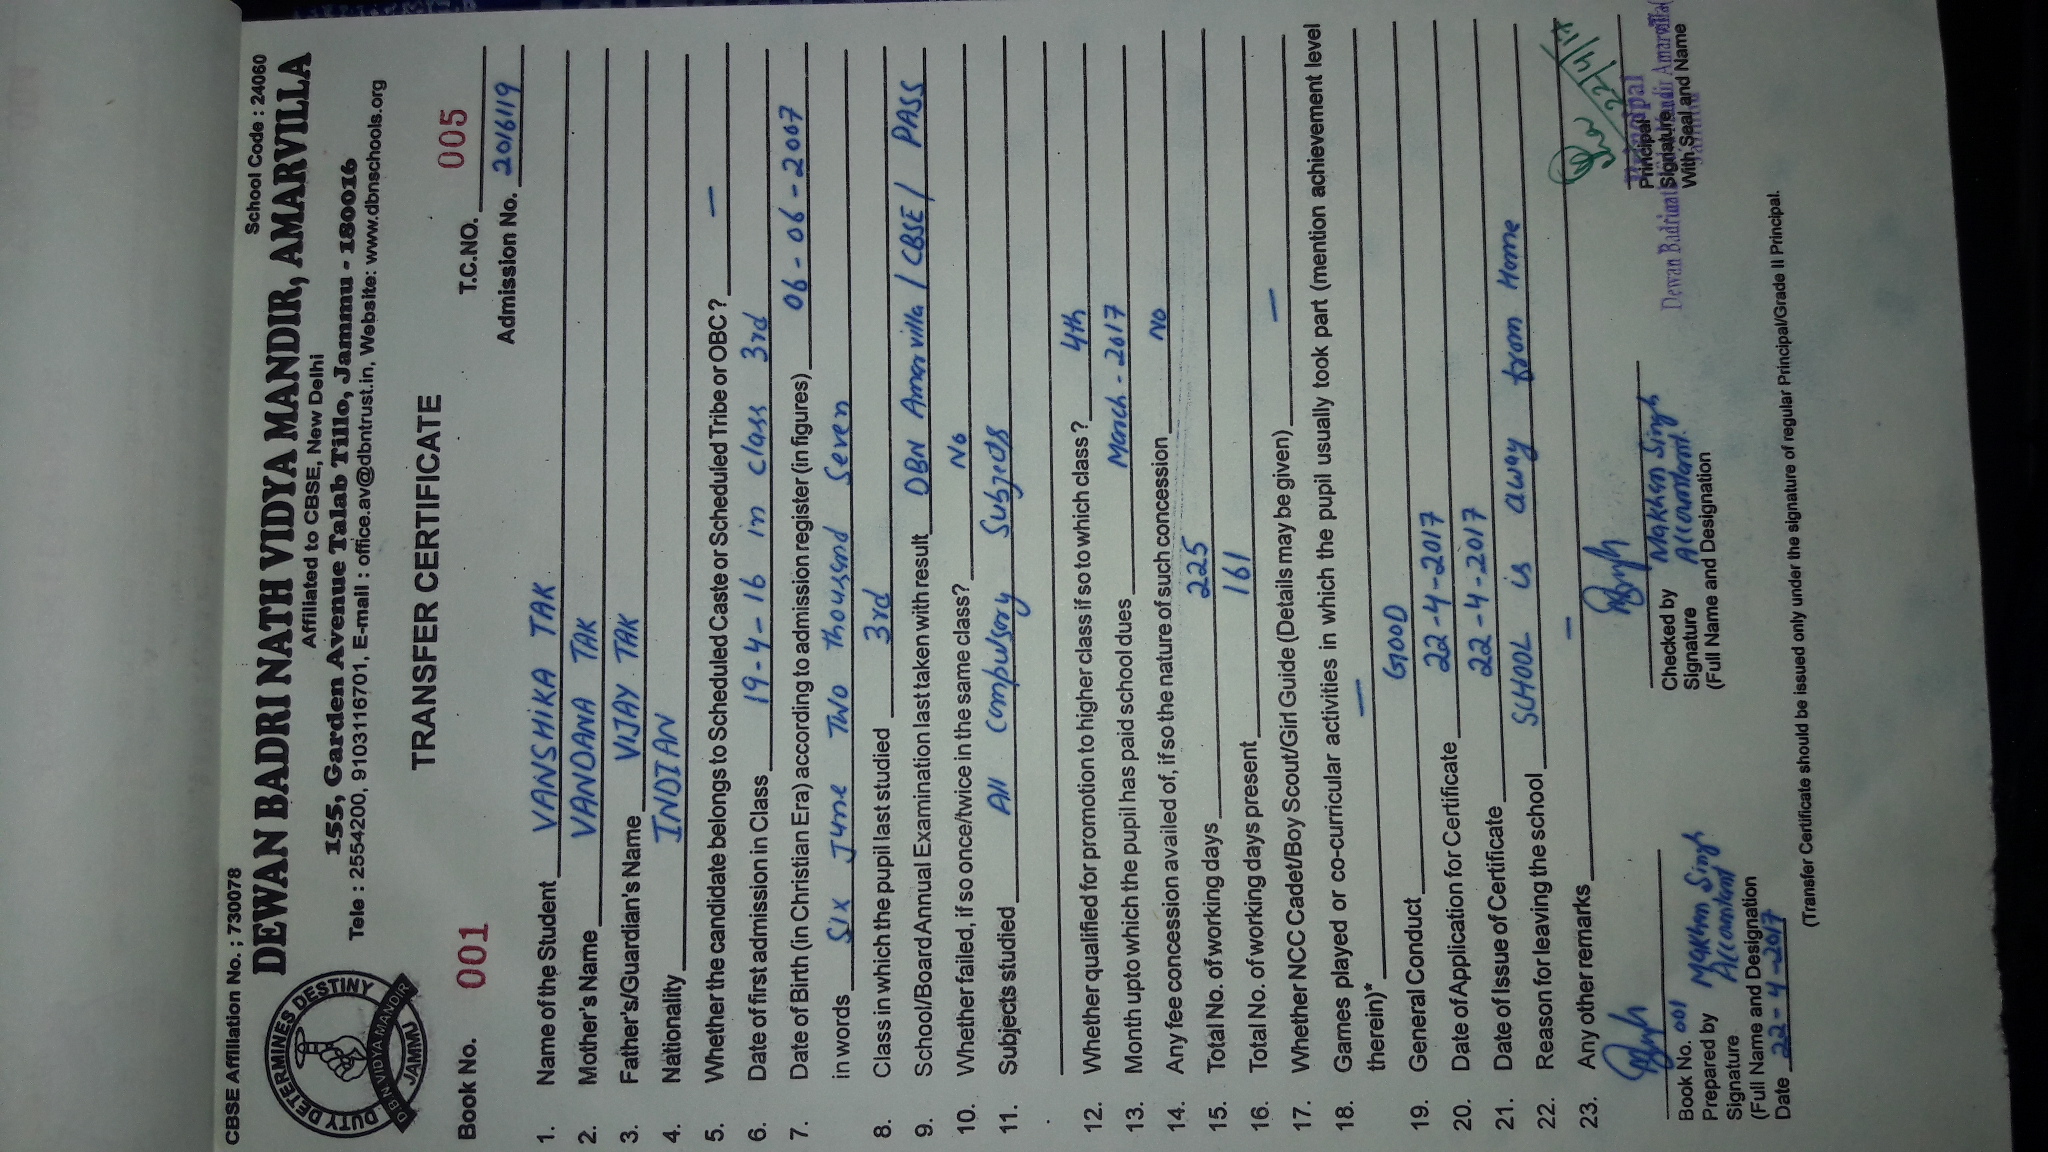 CBSE Affiliation No. ; 730078 School Code : 24060
DEWAN BADRI NATH VIDYA MANDIR, AMARVILLA
Affiliated to CBSE, New Delhi
155, Garden Avenue Talab Tillo, Jammu - 180016
Tele : 2554200, 9103116701, E-mail : office.av@dbntrust.in, Website: www.dbnschools.org
DUTY DETERMINES DESTINY
DBN VIDYA MANDIR
JAMMU
TRANSFER CERTIFICATE
Book No. 001 T.C.NO. 005
Admission No. 2016119
1. Name of the Student VANSHIKA TAK
2. Mother's Name VANDANA TAK
3. Father's/Guardian's Name VIJAY TAK
4. Nationality INDIAN
5. Whether the candidate belongs to Scheduled Caste or Scheduled Tribe or OBC ? —
6. Date of first admission in Class 19-4-16 in class 3rd
7. Date of Birth (in Christian Era) according to admission register (in figures) 06-06-2007
in words Six June Two thousand Seven
8. Class in which the pupil last studied 3rd
9. School/Board Annual Examination last taken with result DBN Amarvilla / CBSE / PASS
10. Whether failed, if so once/twice in the same class? No
11. Subjects studied All Compulsory Subjects
12. Whether qualified for promotion to higher class if so to which class ? 4th
13. Month upto which the pupil has paid school dues March - 2017
14. Any fee concession availed of, if so the nature of such concession No
15. Total No. of working days 225
16. Total No. of working days present 161
17. Whether NCC Cadet/Boy Scout/Girl Guide (Details may be given) —
18. Games played or co-curricular activities in which the pupil usually took part (mention achievement level
therein)* —
19. General Conduct GOOD
20. Date of Application for Certificate 22-4-2017
21. Date of Issue of Certificate 22-4-2017
22. Reason for leaving the school SCHOOL is away from Home
23. Any other remarks —
22/4/17
Book No. 001
Prepared by Makhen Singh
Signature Accountant
(Full Name and Designation
Date 22-4-2017
Checked by Makhen Singh
Signature Accountant
(Full Name and Designation
Principal
Principal
Signature
With Seal and Name
Dewan Badrinath Mandir Amarvilla
(Transfer Certificate should be issued only under the signature of regular Principal/Grade II Principal.